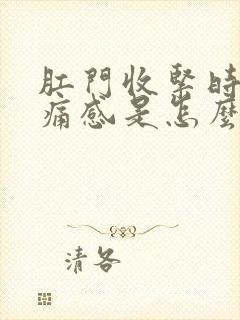 肛門收緊時
痛感是怎麼
清各